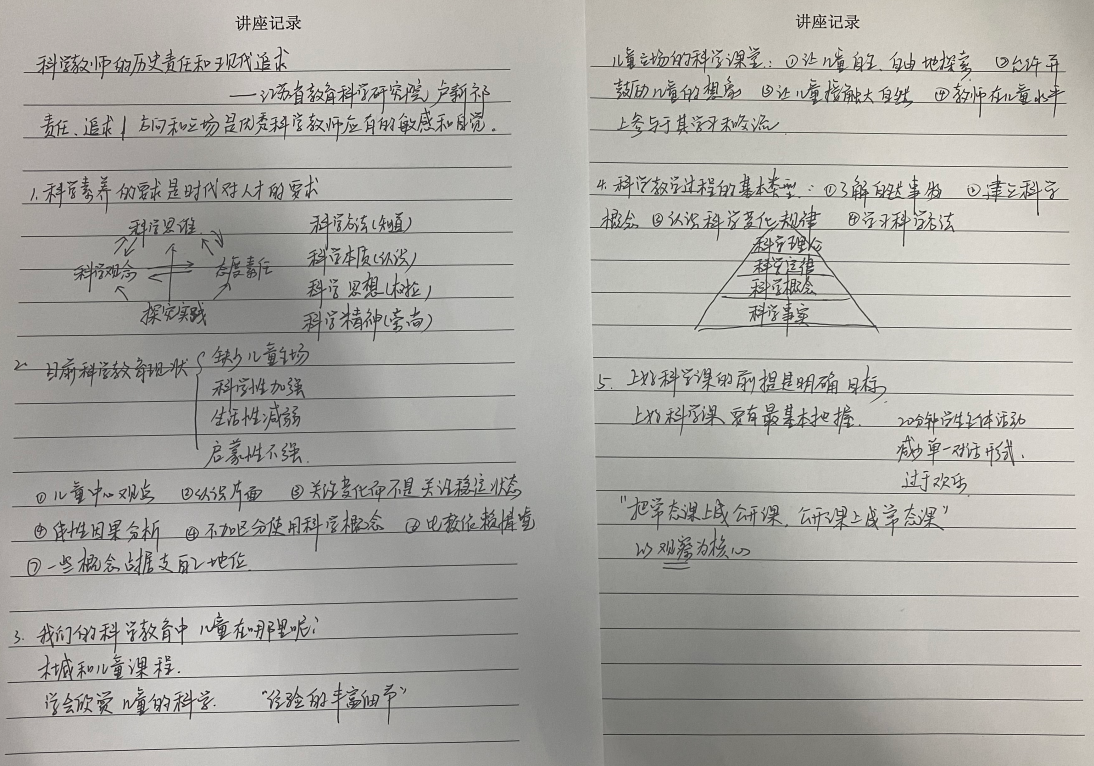 讲座记录
科学教师的历史责任和现代追求
——江苏省教育科学研究院 卢新祁
责任、追求/方向和立场是优秀科学教师应有的敏感和自觉。
1.科学素养的要求是时代对人才的要求
科学思维
科学观念 态度责任
探究实践
科学方法(知道)
科学本质(认识)
科学思想(树立)
科学精神(崇尚)
2. 目前科学教育现状
缺少儿童立场
科学性加强
生活性减弱
启蒙性不强.
①儿童中心观点 ②认识片面 ③关注变化而不是关注稳定状态
④线性因果分析 ④不加区分使用科学概念
⑦一些概念占据支配地位.
3. 我们的科学教育中儿童在哪里呢?
和儿童课程.
学会欣赏儿童的科学. "经验的丰富细节"
讲座记录
儿童立场的科学课堂:①让儿童自主、自由地探索 ②允许并
鼓励儿童的想象 ③让儿童接触大自然 ④教师在儿童水平
上参与于其学习和交流.
4.科学教学过程的基本类型:①了解自然事物 ②建立科学
概念 ③认识科学变化规律 ④学习科学方法
科学理念
科学定律
科学概念
科学事实
5. 上好科学课的前提是明确目标.
上好科学课要有最基本把握.
20分钟学生主体活动
减少单一对话形式.
过于欢乐
"把常态课上成公开课,公开课上成常态课"
以观察为核心